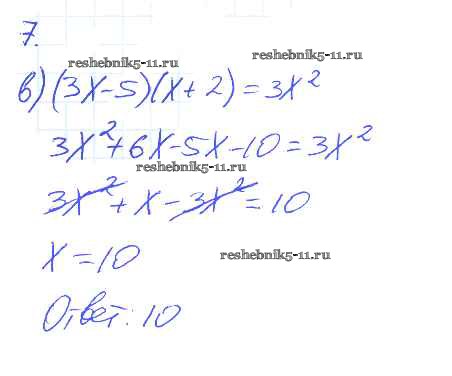 7.
reshebnik5-11.ru
reshebnik5-11.ru
в) (3x-5)(x+2)=3x²
3x²+6x-5x-10=3x²
reshebnik5-11.ru
3x²+x-3x²=10
x=10
reshebnik5-11.ru
Ответ: 10